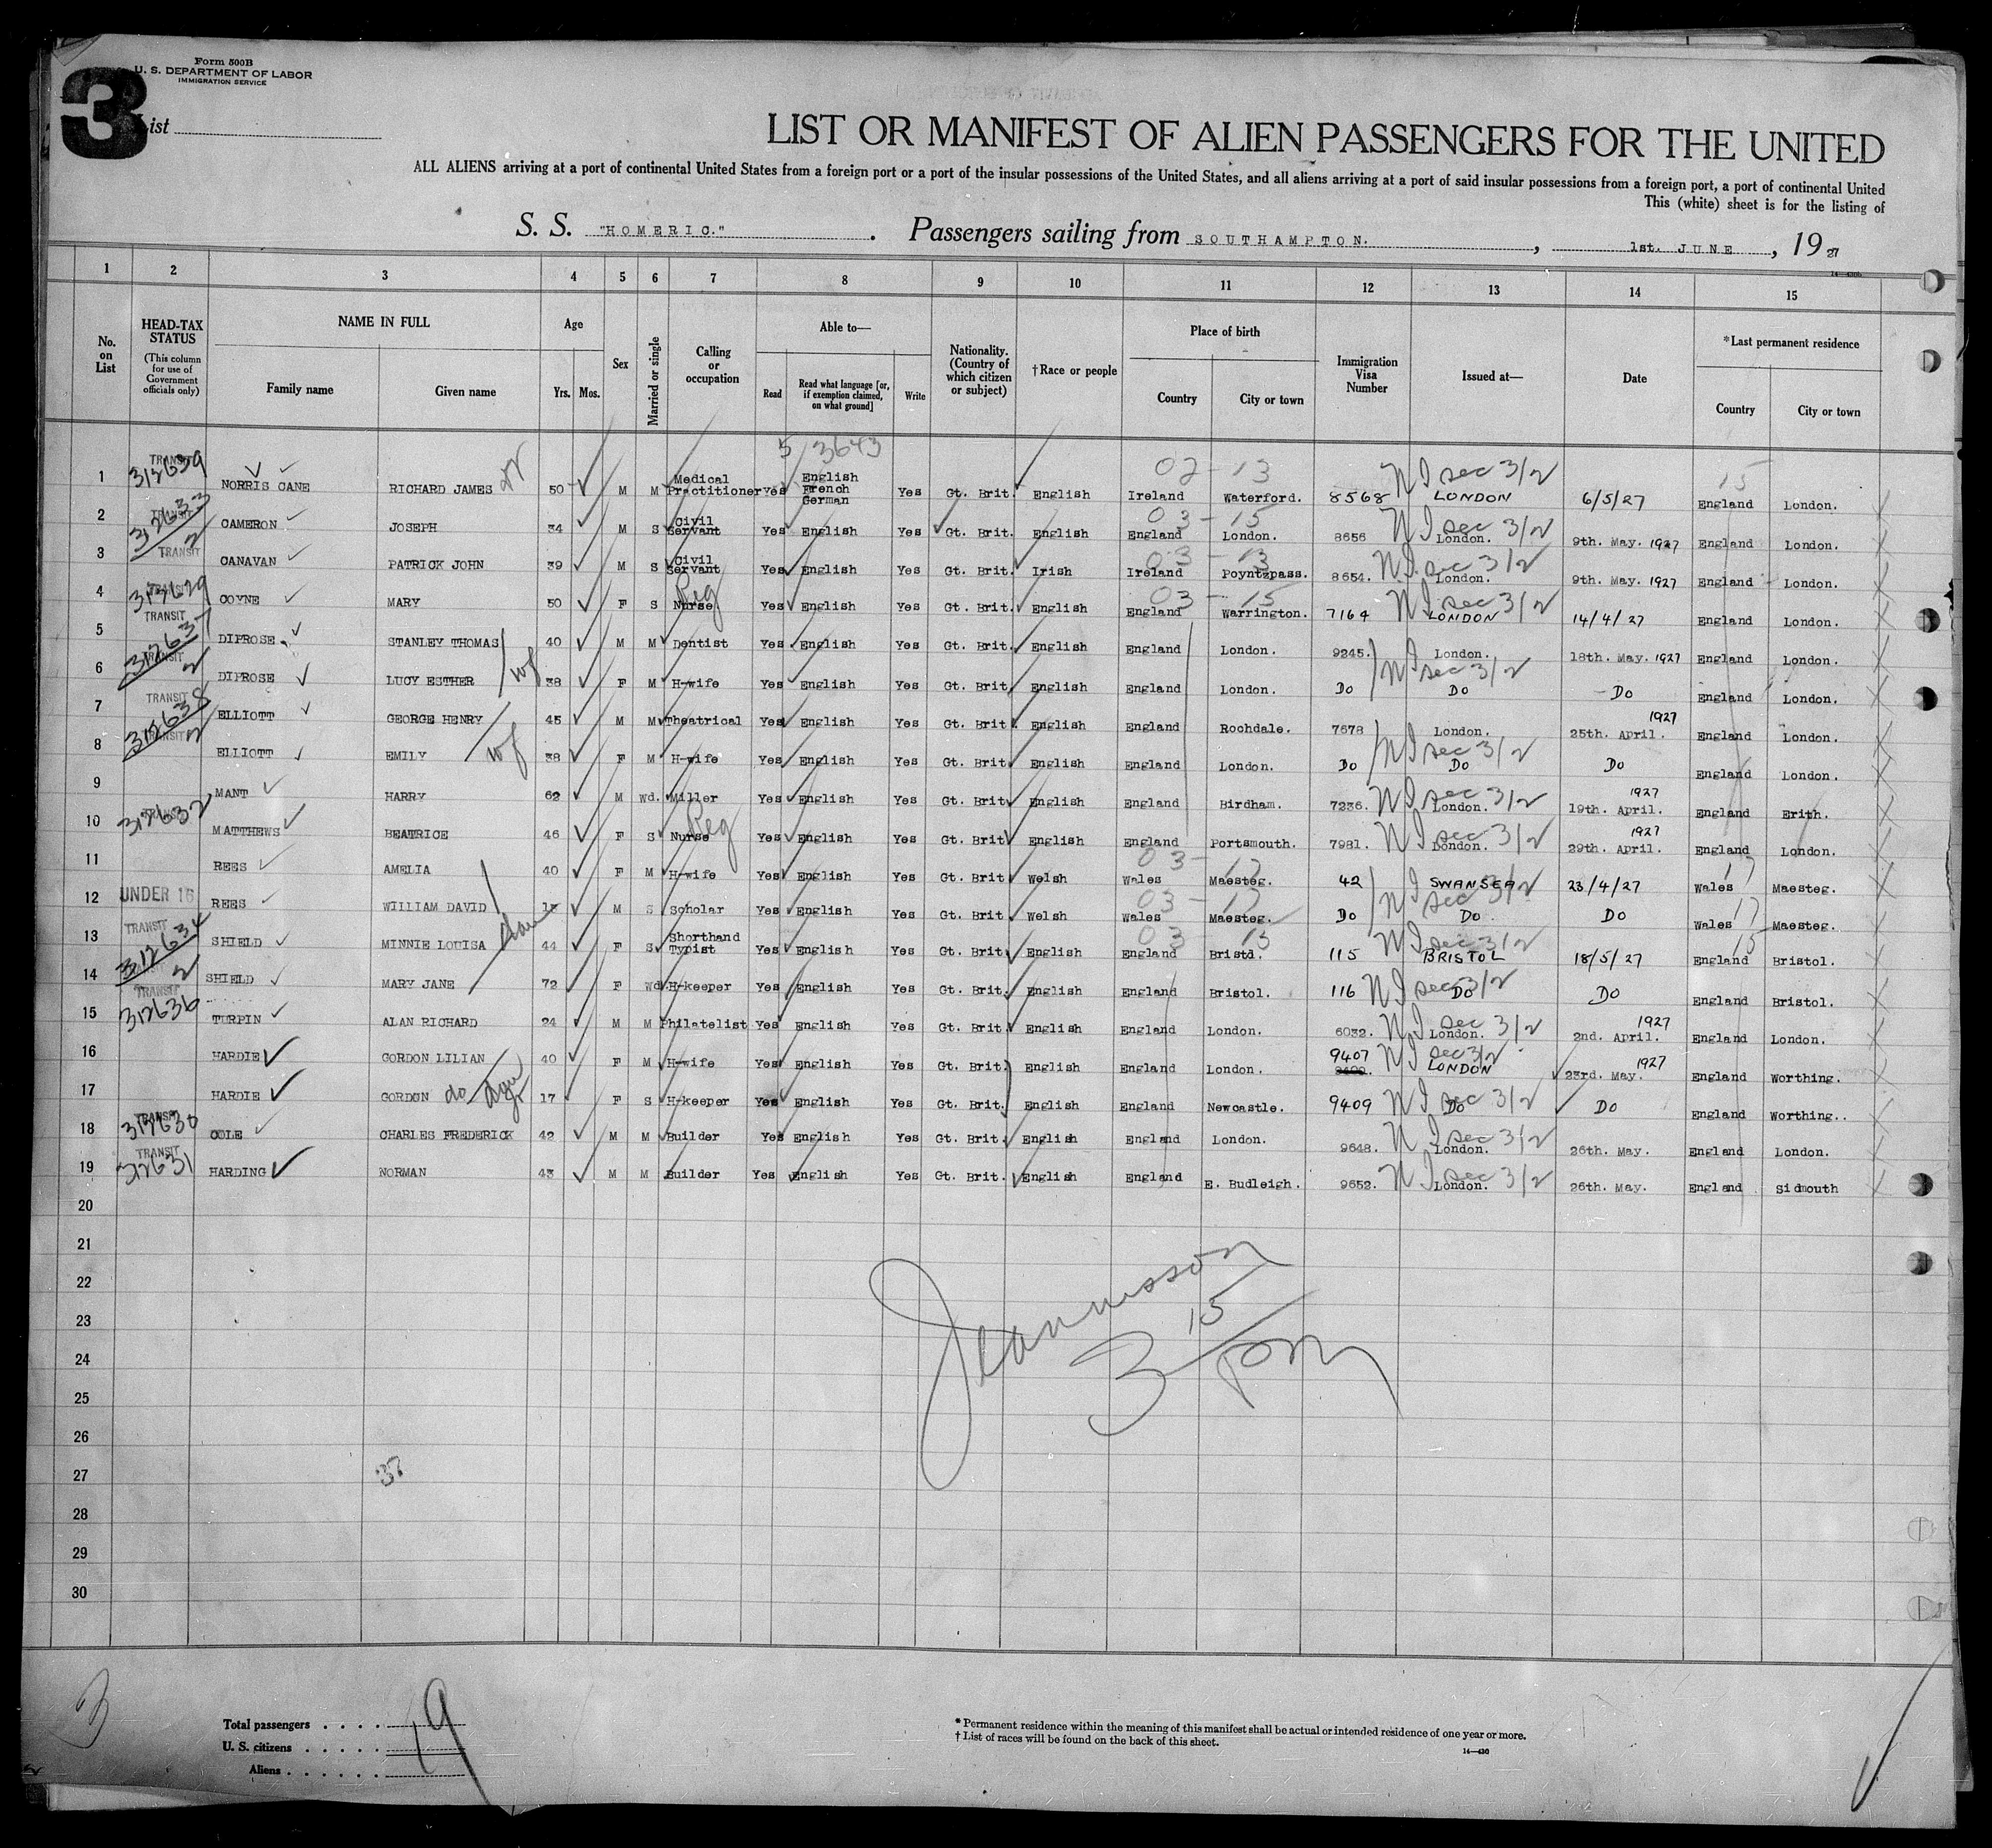 Form 500B
U. S. DEPARTMENT OF LABOR
IMMIGRATION SERVICE
3
List
LIST OR MANIFEST OF ALIEN PASSENGERS FOR THE UNITED
ALL ALIENS arriving at a port of continental United States from a foreign port or a port of the insular possessions of the United States, and all aliens arriving at a port of said insular possessions from a foreign port, a port of continental United
This (white) sheet is for the listing of
S. S. "HOMERIC." Passengers sailing from SOUTHAMPTON. , 1st. JUNE , 19 27
14-430b
1 2 3 4 5 6 7 8 9 10 11 12 13 14 15
No. on List
HEAD-TAX STATUS
(This column for use of Government officials only)
NAME IN FULL
Family name Given name
Age
Yrs. Mos.
Sex
Married or single
Calling or occupation
Able to—
Read Read what language [or, if exemption claimed, on what ground] Write
Nationality. (Country of which citizen or subject)
†Race or people
Place of birth
Country City or town
Immigration Visa Number
Issued at—
Date
*Last permanent residence
Country City or town
5/3643
1 TRANSIT 312639 NORRIS CANE RICHARD JAMES 50 M M Medical Practitioner Yes English French German Yes Gt. Brit. English Ireland Waterford. 02-13 8568 N I sec 3/2 LONDON 6/5/27 15 England London.
2 TRANSIT 312633 2 CAMERON JOSEPH 34 M S Civil Servant Yes English Yes Gt. Brit. English England London. 03-15 8656 N I sec 3/2 London. 9th. May. 1927 England London.
3 TRANSIT CANAVAN PATRICK JOHN 39 M S Civil Servant Yes English Yes Gt. Brit. Irish Ireland Poyntzpass. 03-13 8654. N I sec 3/2 London. 9th. May. 1927 England London.
4 TRANSIT 312629 COYNE MARY 50 F S Reg Nurse Yes English Yes Gt. Brit. English England Warrington. 03-15 7164 N I sec 3/2 LONDON 14/4/27 England London.
5 TRANSIT 312637 2 DIPROSE STANLEY THOMAS 40 M M Dentist Yes English Yes Gt. Brit. English England London. 9245. London. 18th. May. 1927 England London.
6 TRANSIT DIPROSE LUCY ESTHER wf 38 F M H-wife Yes English Yes Gt. Brit. English England London. Do N I sec 3/2 Do Do England London.
7 TRANSIT 312638 2 ELLIOTT GEORGE HENRY 45 M M Theatrical Yes English Yes Gt. Brit. English England Rochdale. 7678 London. 25th. April. 1927 England London.
8 TRANSIT ELLIOTT EMILY wf 38 F M H-wife Yes English Yes Gt. Brit. English England London. Do N I sec 3/2 Do Do England London.
9 MANT HARRY 62 M Wd. Miller Yes English Yes Gt. Brit. English England Birdham. 7236. N I sec 3/2 London. 19th. April. 1927 England Erith.
10 TRANSIT 312632 MATTHEWS BEATRICE 46 F S Reg Nurse Yes English Yes Gt. Brit. English England Portsmouth. 7981. N I sec 3/2 London. 29th. April. 1927 England London.
11 REES AMELIA 40 F M H-wife Yes English Yes Gt. Brit. Welsh Wales Maesteg. 03-17 42 SWANSEA 23/4/27 17 Wales Maesteg.
12 UNDER 16 REES WILLIAM DAVID M S Scholar Yes English Yes Gt. Brit. Welsh Wales Maesteg. 03-17 Do N I sec 3/2 Do Do 17 Wales Maesteg.
13 TRANSIT 312634 2 SHIELD MINNIE LOUISA 44 F S Shorthand Typist Yes English Yes Gt. Brit. English England Bristol. 03 15 115 N I sec 3/2 BRISTOL 18/5/27 15 England Bristol.
14 SHIELD MARY JANE 72 F Wd H-keeper Yes English Yes Gt. Brit. English England Bristol. 116 N I sec 3/2 Do Do England Bristol.
15 TRANSIT 312636 TURPIN ALAN RICHARD 24 M M Philatelist Yes English Yes Gt. Brit. English England London. 6032. N I sec 3/2 London. 2nd. April. 1927 England London.
16 HARDIE GORDON LILIAN 40 F M H-wife Yes English Yes Gt. Brit. English England London. 9407 N I sec 3/2 LONDON 23rd. May. 1927 England Worthing.
17 HARDIE GORDON do 17 F S H-keeper Yes English Yes Gt. Brit. English England Newcastle. 9409 N I sec 3/2 Do Do England Worthing..
18 TRANSIT 312630 COLE CHARLES FREDERICK 42 M M Builder Yes English Yes Gt. Brit. English England London. 9648. N I sec 3/2 London. 26th. May. England London.
19 TRANSIT 312631 HARDING NORMAN 43 M M Builder Yes English Yes Gt. Brit. English England E. Budleigh. 9652. N I sec 3/2 London. 26th. May. England Sidmouth
20
21
22
23
24
25
26
27
28
29
30
15
3 pm
37
3
Total passengers . . . . 19
U. S. citizens . . . . .
Aliens . . . . . .
* Permanent residence within the meaning of this manifest shall be actual or intended residence of one year or more.
† List of races will be found on the back of this sheet.
14—430